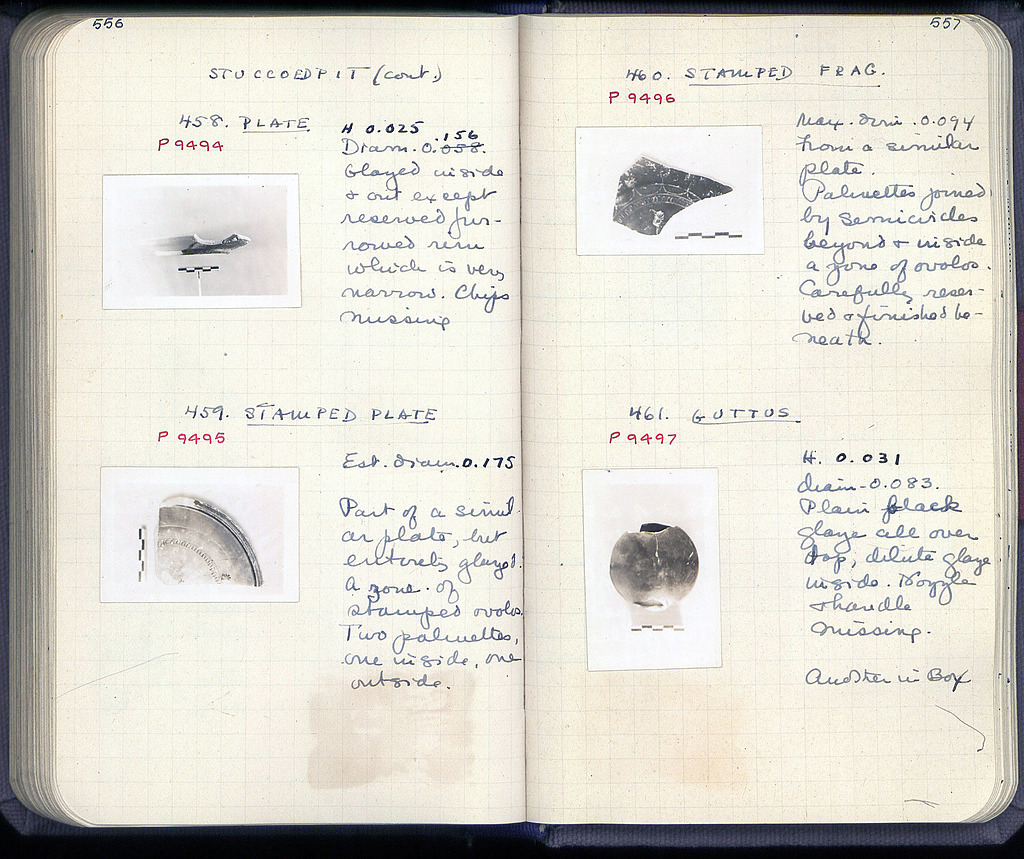 556
STUCCOED PIT (cont.)
458. PLATE
P 9494
H 0.025
.156
Diam. 0.058.
Glazed inside
& out except
reserved fur-
rowed rim
which is very
narrow. Chips
missing
459. STAMPED PLATE
P 9495
Est. diam. 0.175
Part of a simil-
ar plate, but
entirely glazed.
A zone of
stamped ovolos.
Two palmettes,
one inside, one
outside.
557
460. STAMPED FRAG.
P 9496
Max. dim. 0.094
From a similar
plate.
Palmettes joined
by semicircles
beyond & inside
a zone of ovolos.
Carefully reser-
ved & finished be-
neath.
461. GUTTUS
P 9497
H. 0.031
diam - 0.083.
Plain black
glaze all over
top, dilute glaze
inside. Nozzle
& handle
missing.
Another in Box